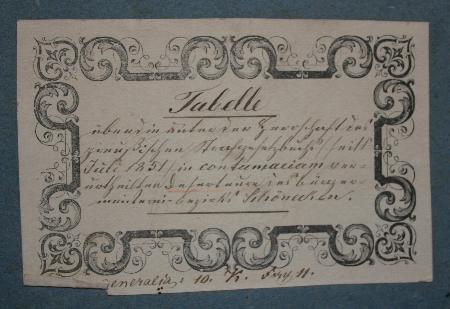 Tabelle
über die unter der Herrschaft des
preußischen Strafgesetzbuchs seit 1
Juli 1851 in contumaciam ver-
urtheilten Deserteure des Bürger-
meisterei-bezirks Schönecken.
Generalia: 10.